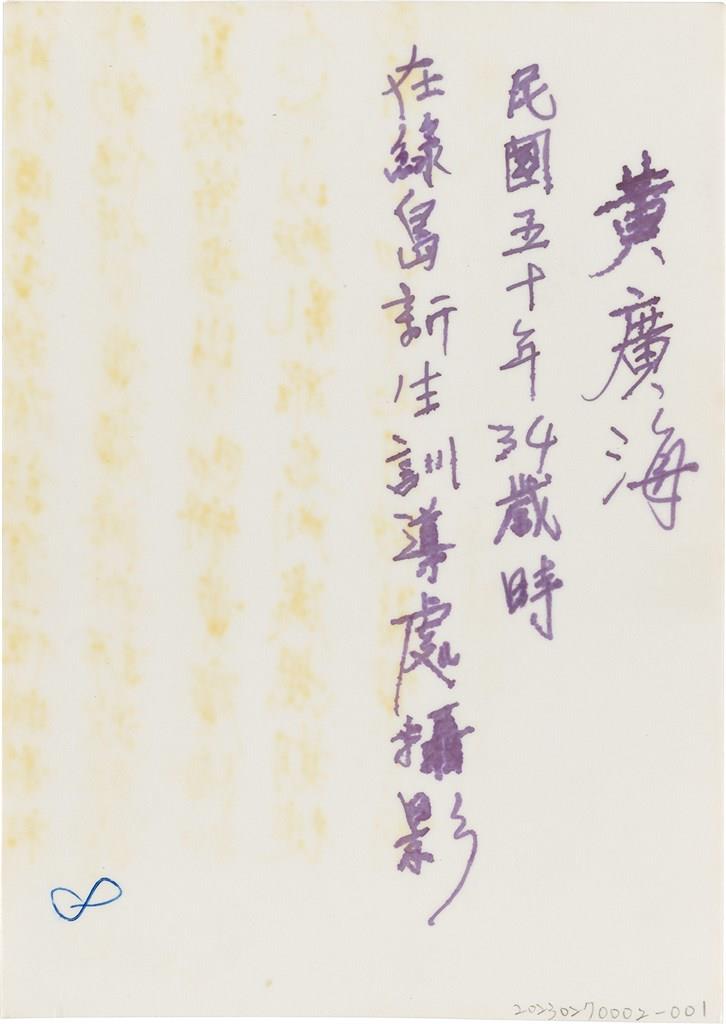 黃廣海
民國五十年34歲時
在綠島新生訓導處攝影
8
20230270002-001